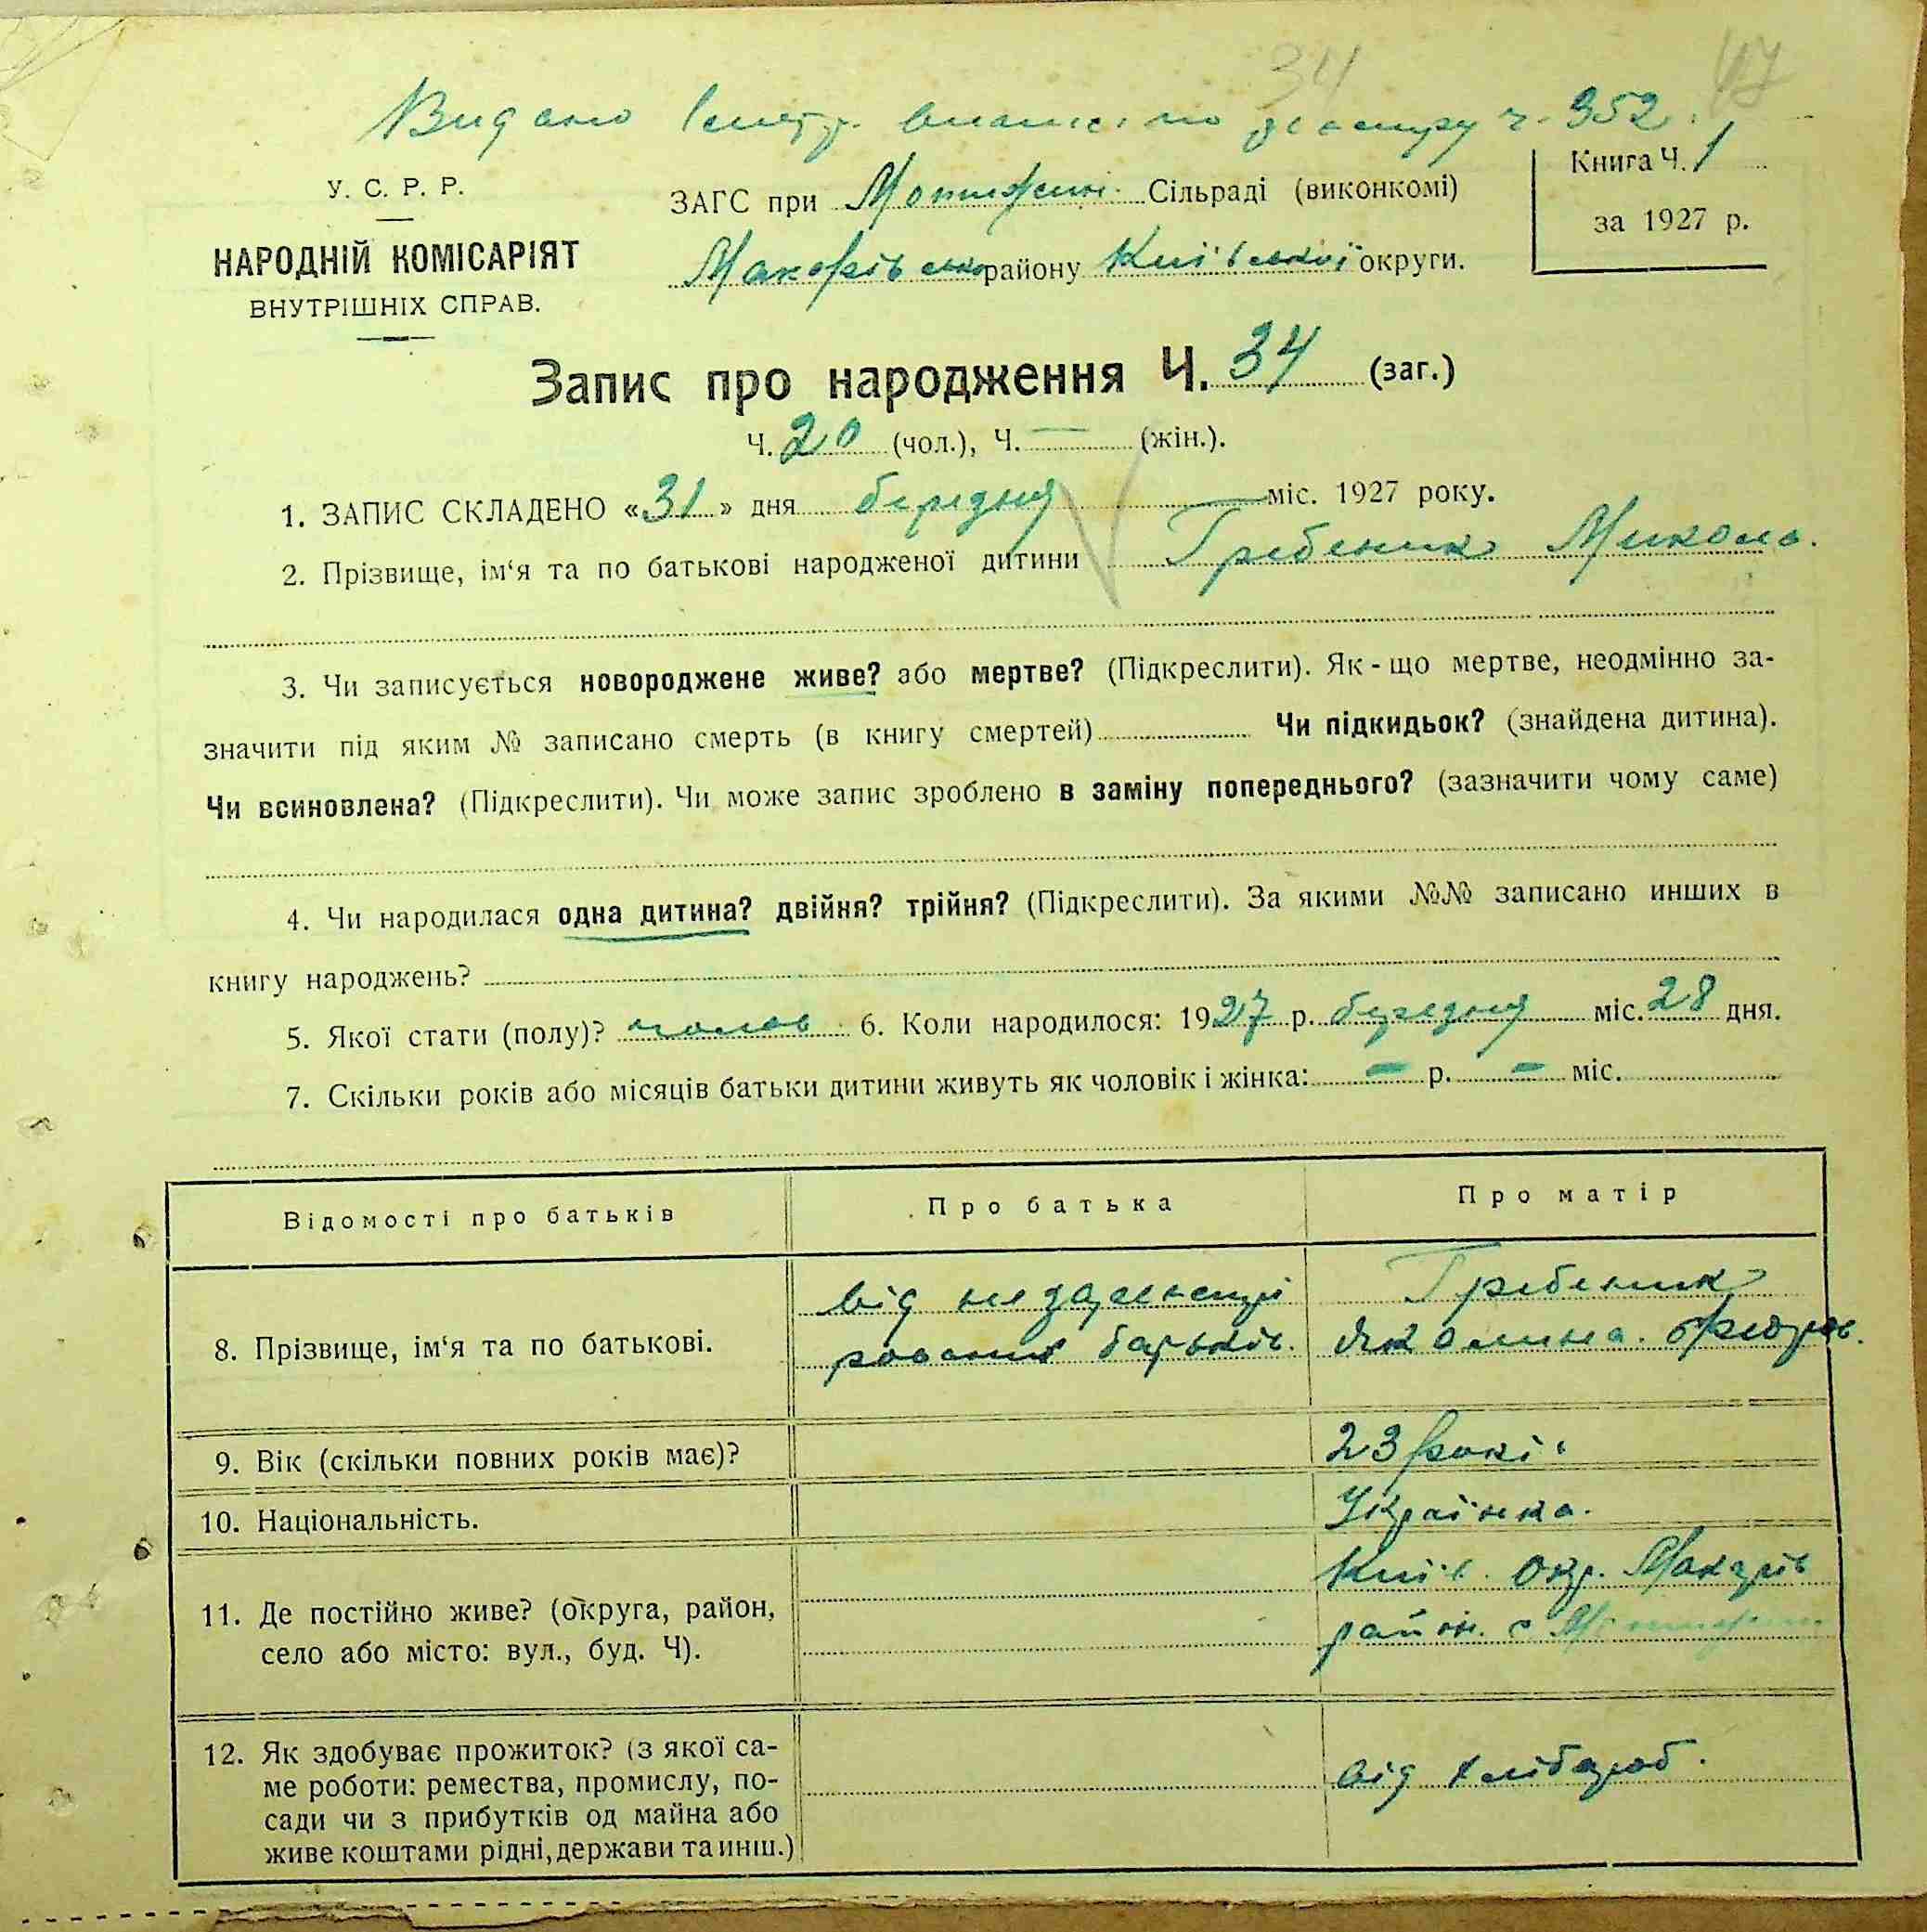 34 47
Видано виписи по реєстру ч. 352.
У. С. Р. Р.
НАРОДНІЙ КОМІСАРІЯТ
ВНУТРІШНІХ СПРАВ.
ЗАГС при Мотижин. Сільраді (виконкомі)
Макарівсько району Київської округи.
Книга Ч. 1
за 1927 р.
Запис про народження Ч. 34 (заг.)
Ч. 20 (чол.), Ч. — (жін.).
1. ЗАПИС СКЛАДЕНО «31» дня березня міс. 1927 року.
2. Прізвище, ім‘я та по батькові народженої дитини Гребеник Микола.
3. Чи записується новороджене живе? або мертве? (Підкреслити). Як-що мертве, неодмінно за-
значити під яким № записано смерть (в книгу смертей) Чи підкидьок? (знайдена дитина).
Чи всиновлена? (Підкреслити). Чи може запис зроблено в заміну попереднього? (зазначити чому саме)
4. Чи народилася одна дитина? двійня? трійня? (Підкреслити). За якими №№ записано инших в
книгу народжень?
5. Якої стати (полу)? чолов. 6. Коли народилося: 1927 р. березня міс. 28 дня.
7. Скільки років або місяців батьки дитини живуть як чоловік і жінка: — р. — міс.
Відомості про батьків Про батька Про матір
8. Прізвище, ім‘я та по батькові.
від не зареєстри
рованих батьків.
Гребеник
Якилина. Федоров.
9. Вік (скільки повних років має)? 23 роки
10. Національність. Українка.
11. Де постійно живе? (округа, район,
село або місто: вул., буд. Ч).
Київ. окр. Макарів
район. с Мотижин
12. Як здобуває прожиток? (з якої са-
ме роботи: ремества, промислу, по-
сади чи з прибутків од майна або
живе коштами рідні, держави та инш.)
від хлібороб.